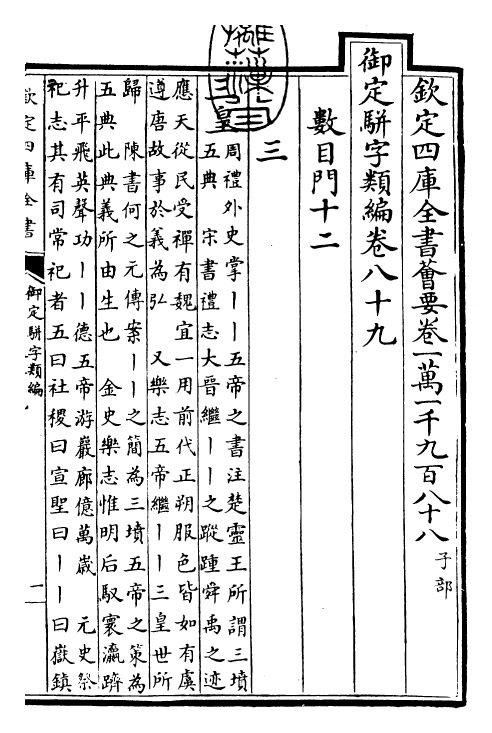 欽定四庫全書薈要卷一萬一千九百八十八 子部
御定駢字類編卷八十九
數目門十二
三
皇
周禮外史掌丨丨五帝之書注楚靈王所謂三墳
五典 宋書禮志大晉繼丨丨之蹤踵舜禹之迹
應天從民受禪有魏宜一用前代正朔服色皆如有虞
遵唐故事於義為弘 又樂志五帝繼丨丨三皇世所
歸 陳書何之元傳案丨丨之簡為三墳五帝之策為
五典此典義所由生也 金史樂志惟明后馭寰瀛躋
升平飛英聲功丨丨德五帝游巖廊億萬歲 元史祭
祀志其有司常祀者五曰社稷曰宣聖曰丨丨曰嶽鎮
欽定四庫全書
御定駢字類編